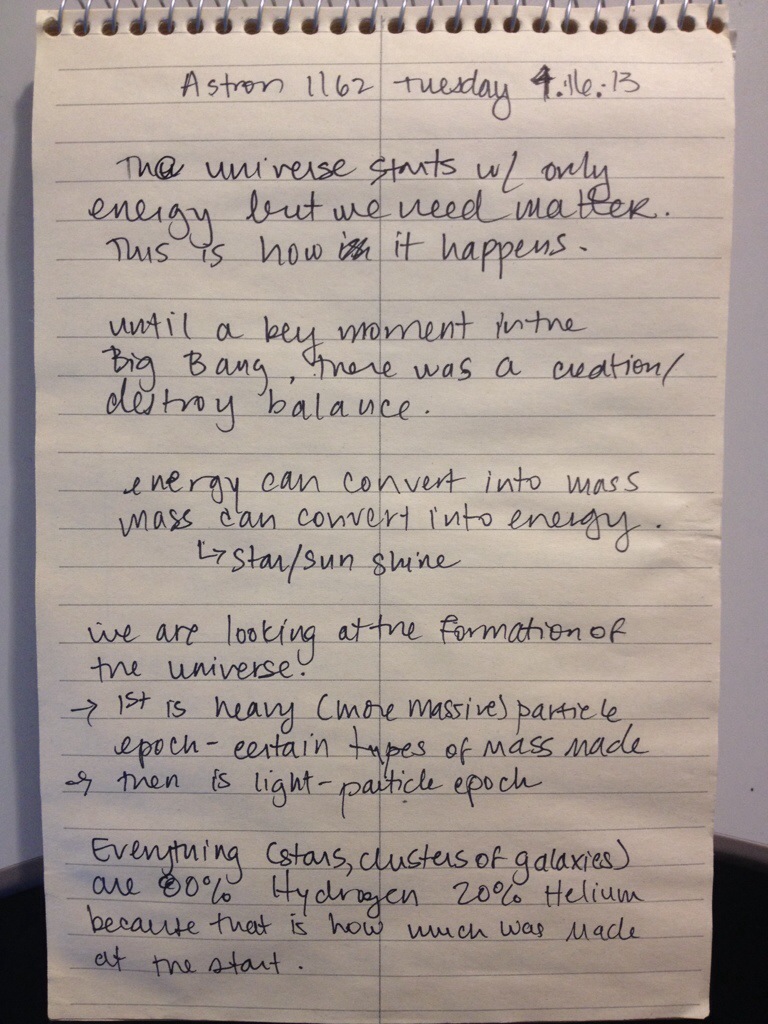 Astron 1162 Tuesday 4.16.13
The universe starts w/ only
energy but we need matter.
This is how it happens.
until a key moment in the
Big Bang, there was a creation/
destroy balance.
energy can convert into mass
mass can convert into energy.
↳ star/sun shine
we are looking at the formation of
the universe.
→ 1st is heavy (more massive) particle
epoch - certain types of mass made
→ then is light-particle epoch
Everything (stars, clusters of galaxies)
are 80% Hydrogen 20% Helium
because that is how much was made
at the start.